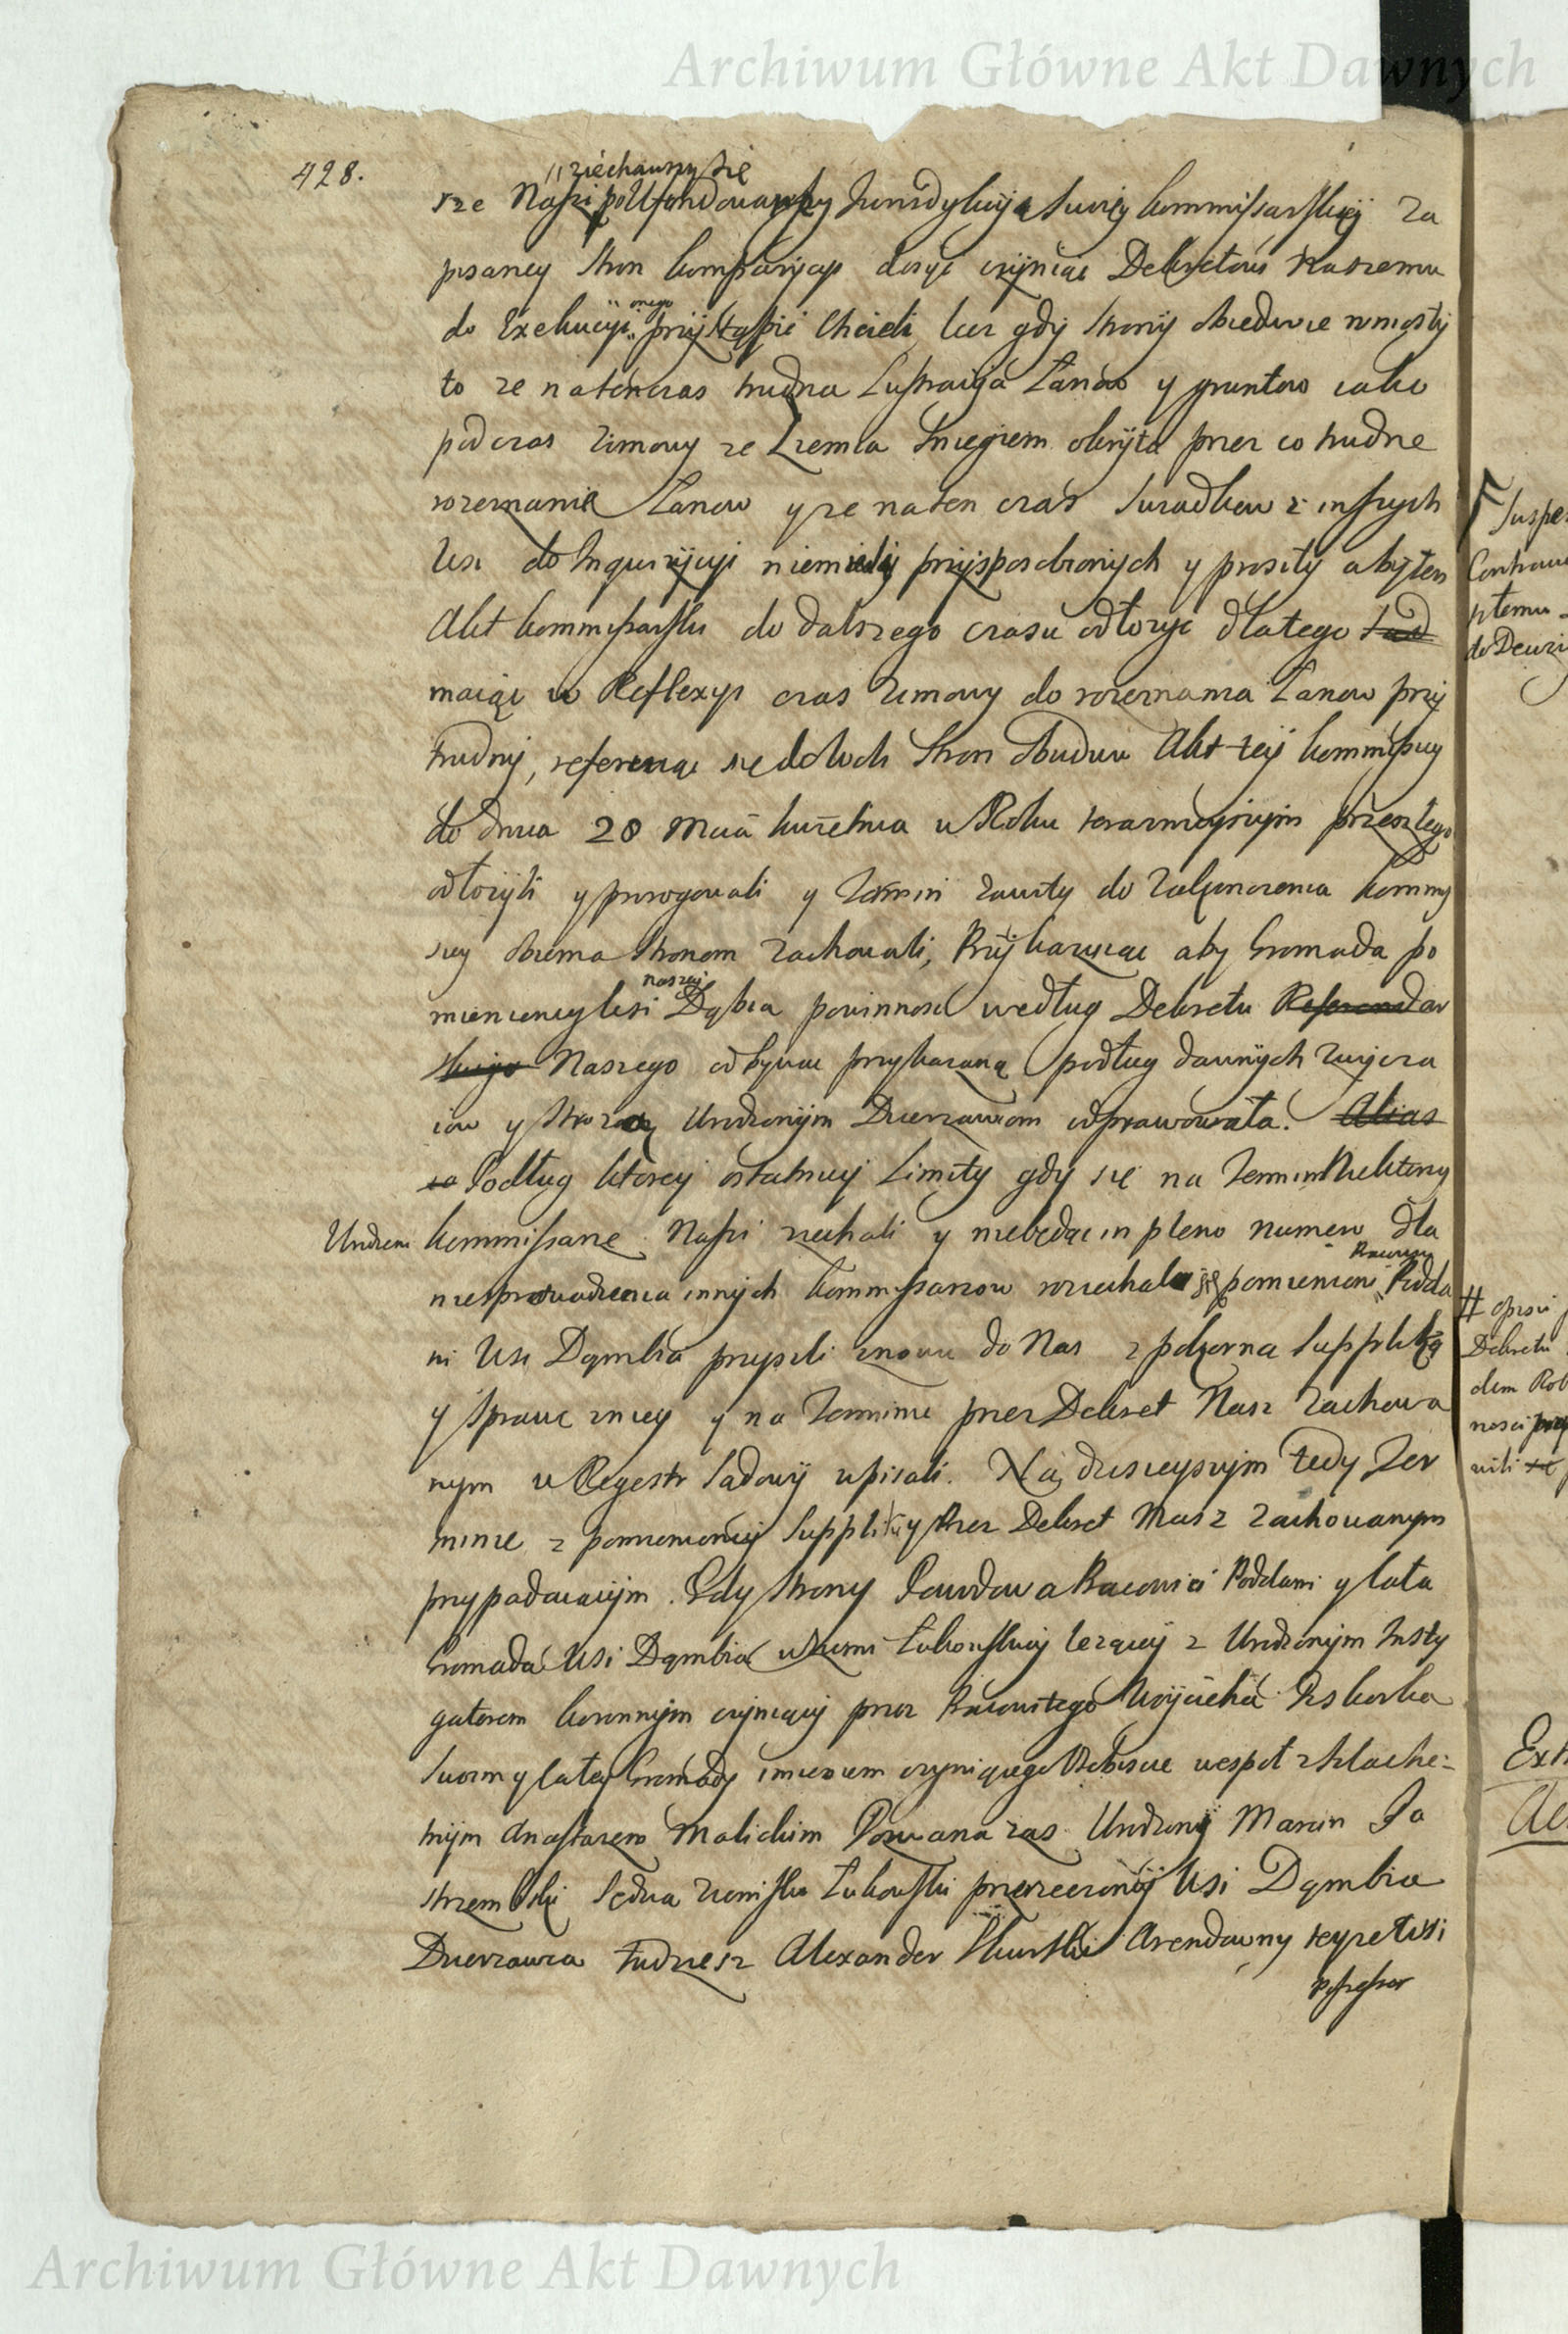 Archiwum Główne Akt Dawnych
428.
ziechawszy się
rze Naszi po Ufondowaney Jurisdykcyi Swoiey kommissarskiey za
pisaney Stron komparycyi dosyć czyniąc Dekretowi Naszemu
do Exekucyi onego przystąpić Chcieli lecz gdy Strony obiedwie wniosły
to ze natenczas trudna Lustracya Łanow y gruntow iako
pod czas zimowy ze Ziemia Sniegiem okryta przez co trudne
rozeznanie Łanow y ze naten czas Swiadkow z inszych
Wsi do Inquizycyi niemieli przysposobionych y prosiły aby ten
Akt kommissarski do dalszego czasu odłozyć dlatego
maiąc w Reflexyi czas Zimowy do rozeznania Łanow przy
trudny, referuiąc się do woli Stron Obudwu Akt tey kommissyi
do dnia 20 Maia kwietnia w Roku teraznieyszym przeszłego
odłozyli y prorogowali y Termin zawity do Zakonczenia kommis
syi obiema Stronom zachowali, Przykazuiąc aby Gromada po
mienioney Wsi naszey Dąbia powinnosc według Dekretu Referendar
skiego Naszego odbywac przykazaną podług dawnych zwycza
iow y Stroze Urodzonym Dzierzawcom odprawowała. Alias
Podług ktorey ostatniey Limity gdy się na Termin Niektorzy
Urodzeni kommissarze Naszi ziechali y niebędąc in pleno numero dla
niesprowadzenia innych kommissarzow roziechali się pomienieni Pracowici Podda
ni Wsi Dąmbia przyszli znowu do Nas z pokorna Suppliką
y Sprawę z niey y na Terminie przez Dekret Nasz zachowa
nym w Regestr Sądowy wpisali. Na dzisieyszym tedy Ter
minie z pomienioney Suppliki y Przez Dekret Nasz zachowanym
przypadaiącym. Gdy Strony Powodowa Pracowici Poddani y cała
Gromada Wsi Dąmbia w Ziemi Łukowskiey lezącey z Urodzonym Insty
gatorem koronnym czyniący przez Pracowitego Woyciecha
Swoim y całey Gromady imieniem czyniącego Osobiscie wespoł z Szlache-
tnym Anastazem Malickim Pozwana zas Urodzony Marcin Ja
strzembski Sędzia Ziemski Łukowski przerzeczoney Wsi Dąmbia
Dzierzawca Tudziesz Alexander Skurski Arendowny teyze Wsi
possessor
Suspe
Contrave
ptemu
do Decizi
# oprócz
Dekretu
dem Rob
nosci
nili
Ext
Archiwum Główne Akt Dawnych